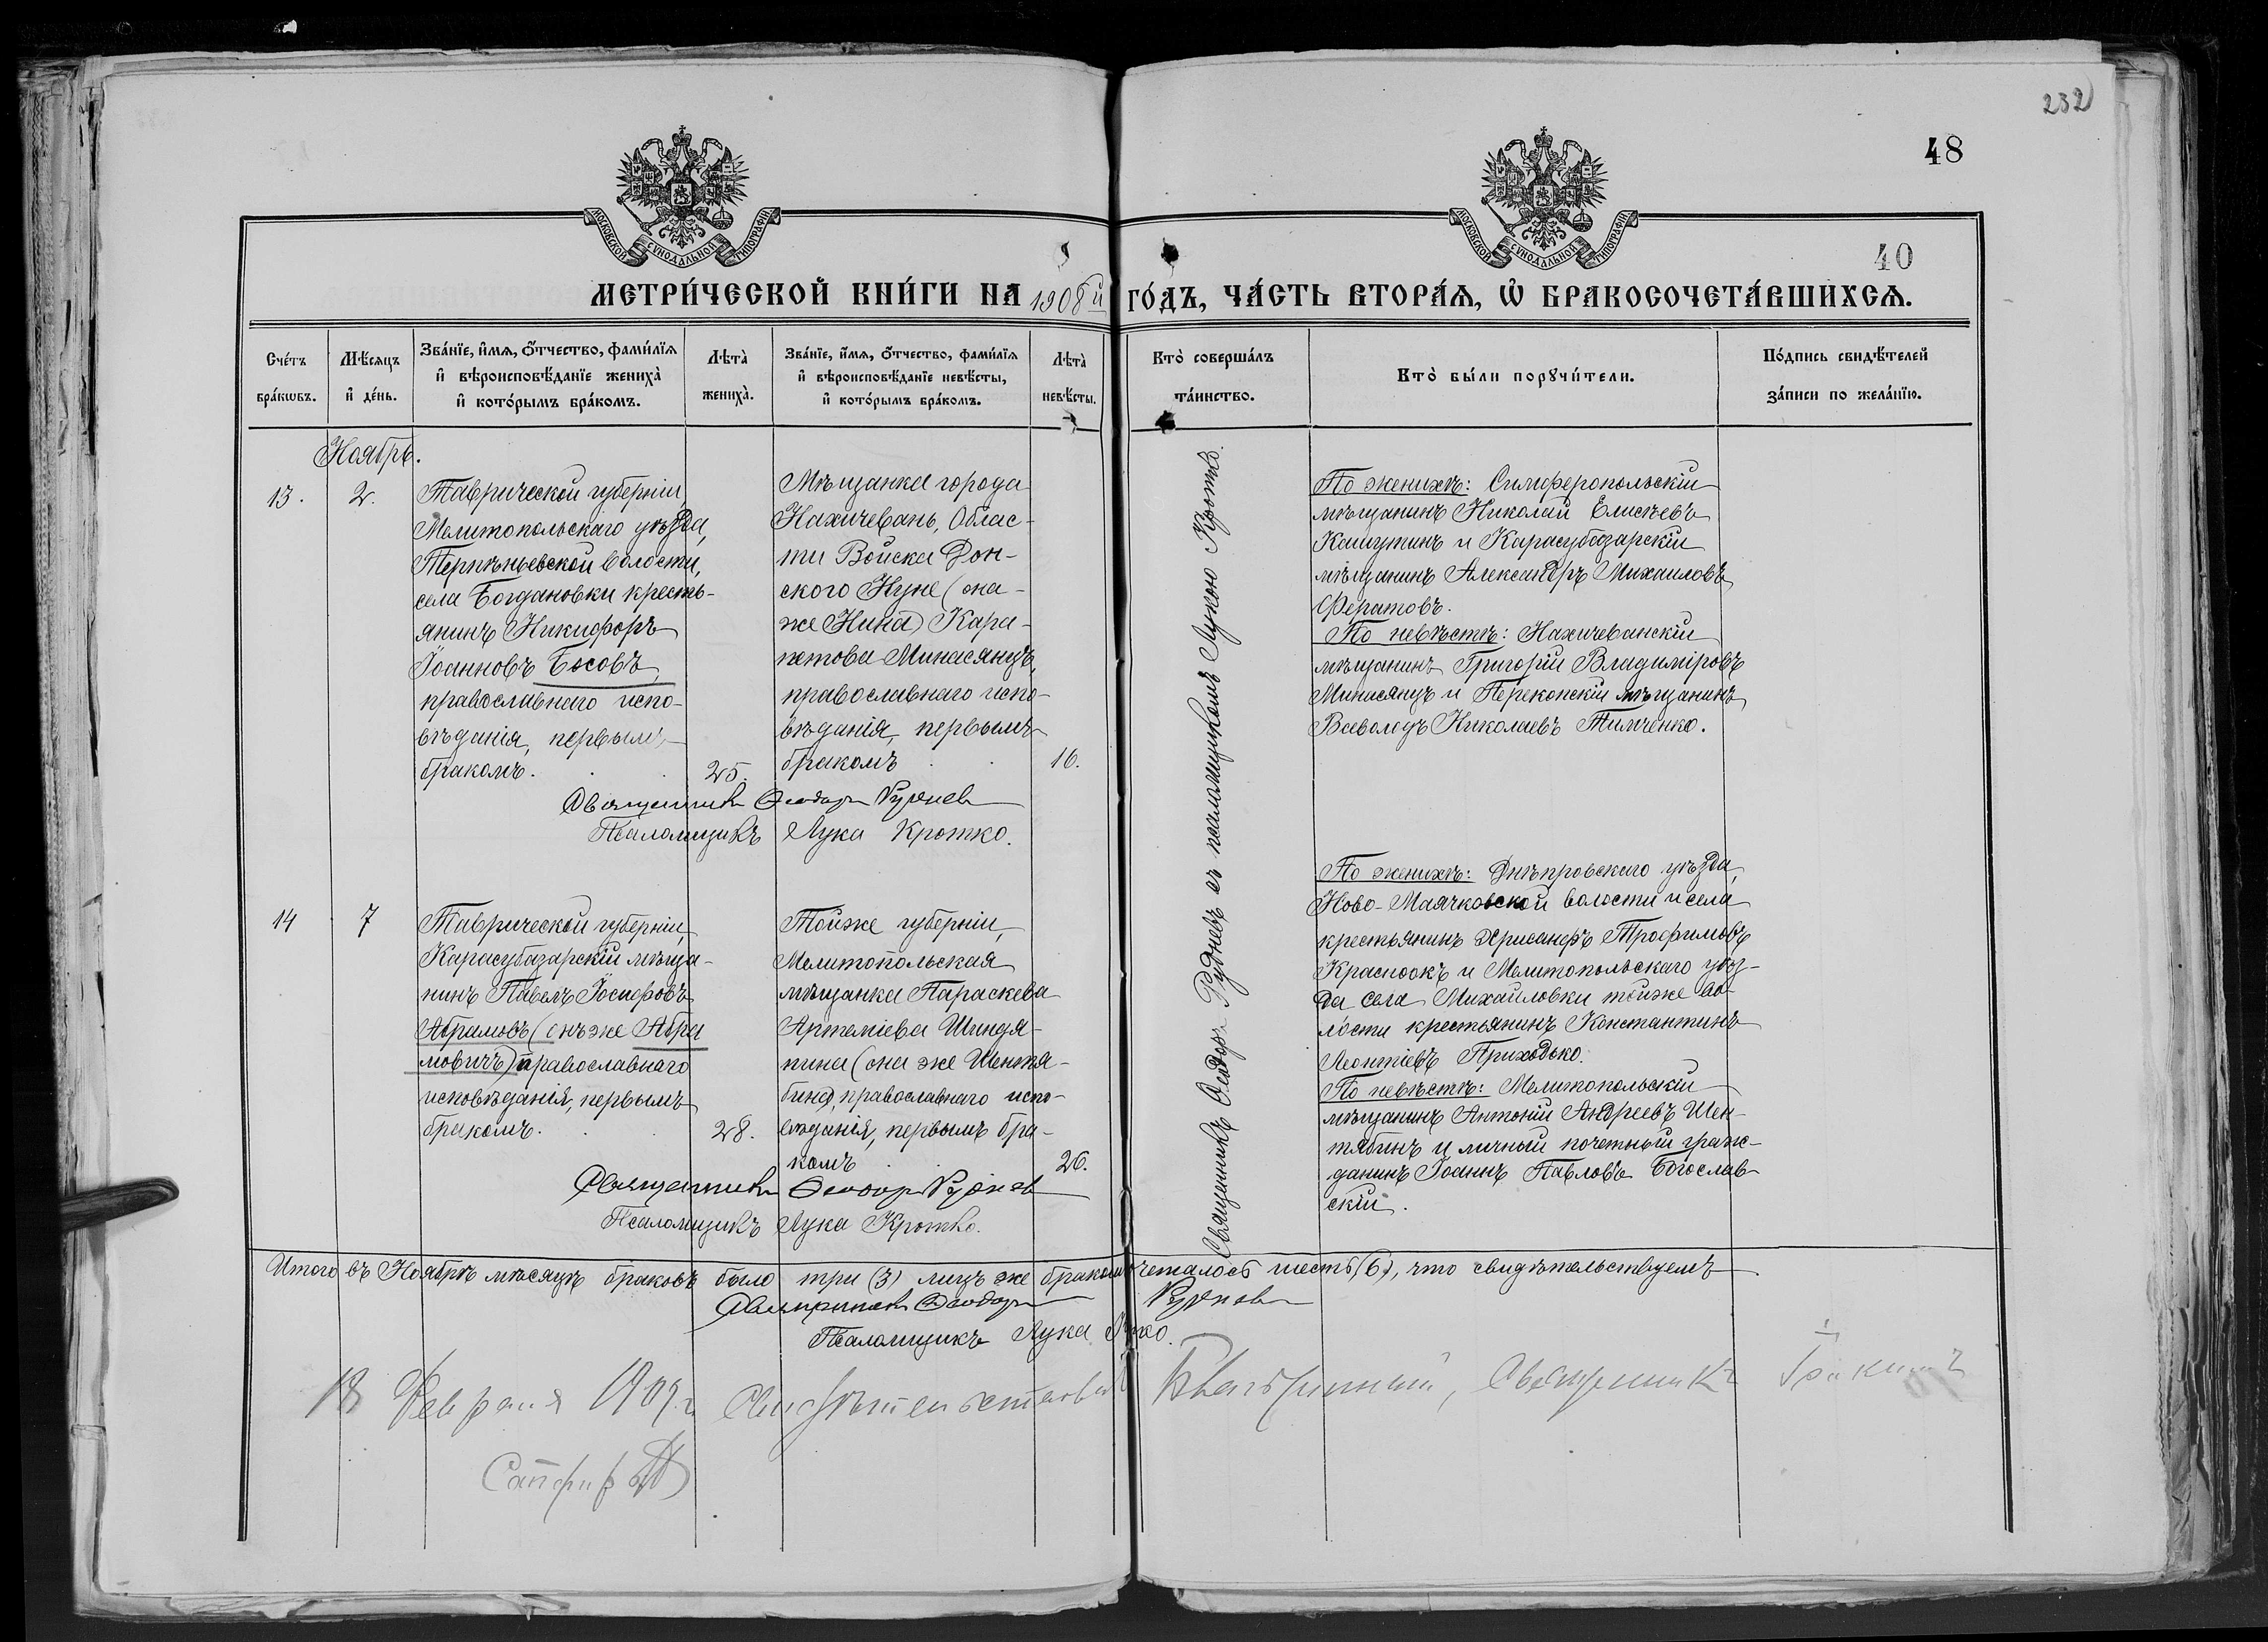 232
48
40
МОСКОВСКОЙ СѴНОДАЛЬНОЙ ТИПОГРАФІИ
МОСКОВСКОЙ СѴНОДАЛЬНОЙ ТИПОГРАФІИ
МЕТРИ́ЧЕСКОЙ КНИ́ГИ НА 1908й ГО́ДЪ, ЧА́СТЬ ВТОРА́Я, Ѡ҆ БРАКОСОЧЕТА́ВШИХСѦ.
Сче́тъ бра́кѡвъ.
Мѣ́сяцъ и҆ де́нь.
Зва́нїе, и҆́мѧ, ѻ҆́тчество, фами́лїѧ и҆ вѣроисповѣ́данїе жениха̀ и҆ кото́рымъ бра́комъ.
Лѣта̀ жениха̀.
Зва́нїе, и҆́мѧ, ѻ҆́тчество, фами́лїѧ и҆ вѣроисповѣ́данїе невѣ́сты, и҆ кото́рымъ бра́комъ.
Лѣта̀ невѣ́сты.
Кто̀ соверша́лъ та́инство.
Кто̀ бы́ли порꙋчи́тели.
По́дпись свидѣ́телей за́писи по жела́нїю.
Ноябрь.
13.
2.
Таврической губерніи,
Мелитопольскаго уѣзда,
Терпѣньевской волости,
села Богдановки кресть-
янинъ Никифоръ
Іоанновъ Босовъ,
православнаго испо-
вѣданія, первымъ
бракомъ.
25.
Мѣщанка города
Нахичевань, Облас-
ти Войска Дон-
ского Нуне (она-
же Нина) Кара-
петова Минасянцъ,
православнаго испо-
вѣданія, первымъ
бракомъ
16.
Священникъ Ѳеодоръ Рудневъ
Псаломщикъ Лука Кротко.
Священникъ Ѳеодоръ Рудневъ съ псаломщикомъ Лукою Кротко.
По женихѣ: Симферопольскій
мѣщанинъ Николай Елисѣевъ
Кашутинъ и Карасубазарскій
мѣщанинъ Александръ Михаиловъ
Фератовъ.
По невѣстѣ: Нахичеванскій
мѣщанинъ Григорій Владиміровъ
Минасянцъ и Перекопскій мѣщанинъ
Всеволодъ Николаевъ Тимченко.
14
7
Таврической губерніи,
Карасубазарскій мѣща-
нинъ Павелъ Іосифовъ
Абрамовъ (онъ же Абра
мовичъ) православнаго
исповѣданія, первымъ
бракомъ.
28.
Тойже губерніи,
Мелитопольская
мѣщанка Параскева
Артеміева Шиндя-
пина (она же Шентя-
бина), православнаго испо-
вѣданія, первымъ бра-
комъ
26.
Священникъ Ѳеодоръ Рудневъ
Псаломщикъ Лука Кротко.
По женихѣ: Днѣпровскаго уѣзда,
Ново-Маячковской волости и села
крестьянинъ Хрисанфъ Трофимовъ
Красноокъ и Мелитопольскаго уѣз-
да села Михайловки тойже во-
лости крестьянинъ Константинъ
Леонтіевъ Приходько.
По невѣстѣ: Мелитопольскій
мѣщанинъ Антоній Андреевъ Шен-
тябинъ и личный почетный граж-
данинъ Іоаннъ Павловъ Богослав-
скій.
Итого въ Ноябрѣ мѣсяцѣ браковъ было три (3) лицъ же бракомъ четалось шесть (6), что свидѣтельствуемъ.
Священникъ Ѳеодоръ Рудневъ
Псаломщикъ Лука
18 Февраля 1909 г. Свидѣтельствовалъ Благочинный, Священникъ